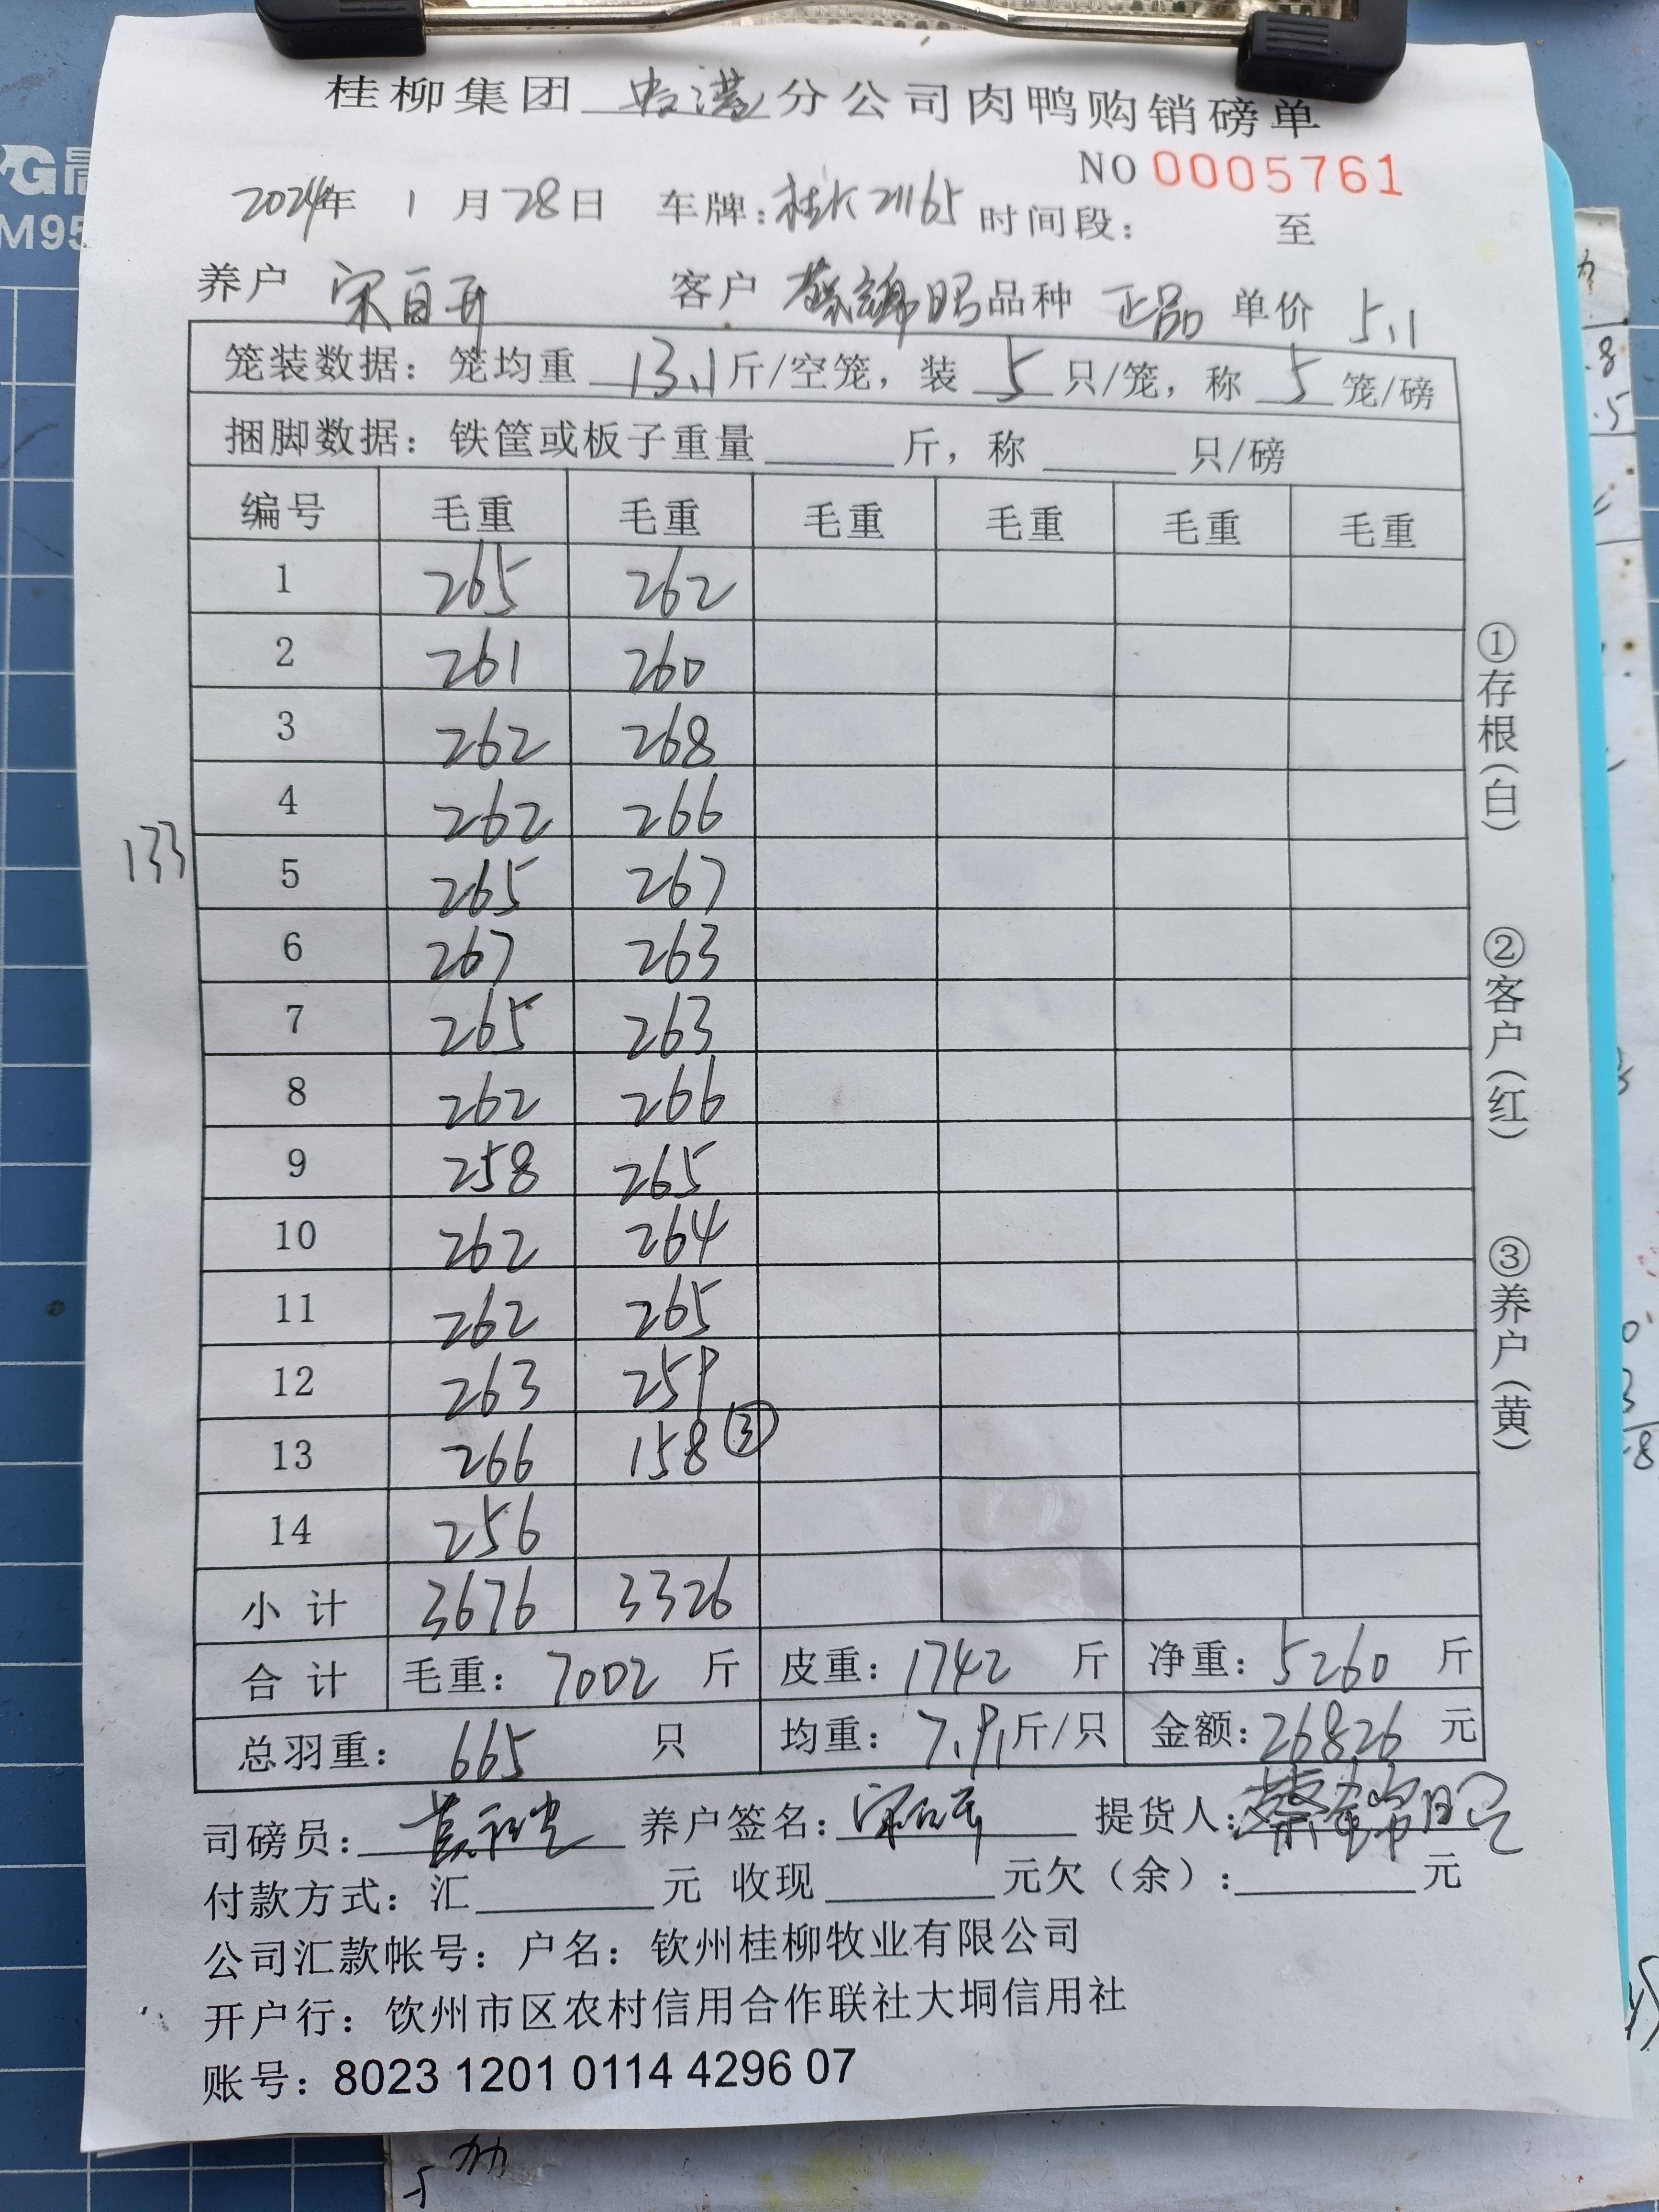 桂柳集团 分公司肉鸭购销磅单
NO 0005761
2024年 1 月 28 日 车牌: 桂K21165 时间段: 至
养户 宋百升 客户 蔡锦昭 品种 正品 单价 5.1
笼装数据: 笼均重 13.1 斤/空笼, 装 5 只/笼, 称 5 笼/磅
捆脚数据: 铁筐或板子重量 斤, 称 只/磅
编号 毛重 毛重 毛重 毛重 毛重 毛重
1 265 262
2 261 260
3 262 268
4 262 266
133
5 265 267
6 267 263
7 265 263
8 262 266
9 258 265
10 262 264
11 262 265
12 263 259
13 266 158 ③
14 256
小计 3676 3326
合计 毛重: 7002 斤 皮重: 1742 斤 净重: 5260 斤
总羽重: 665 只 均重: 7.91 斤/只 金额: 26826 元
司磅员: 养户签名: 提货人: 蔡锦昭
付款方式: 汇 元 收现 元欠(余): 元
公司汇款帐号: 户名: 钦州桂柳牧业有限公司
开户行: 饮州市区农村信用合作联社大垌信用社
账号: 8023 1201 0114 4296 07
①存根(白)
②客户(红)
③养户(黄)